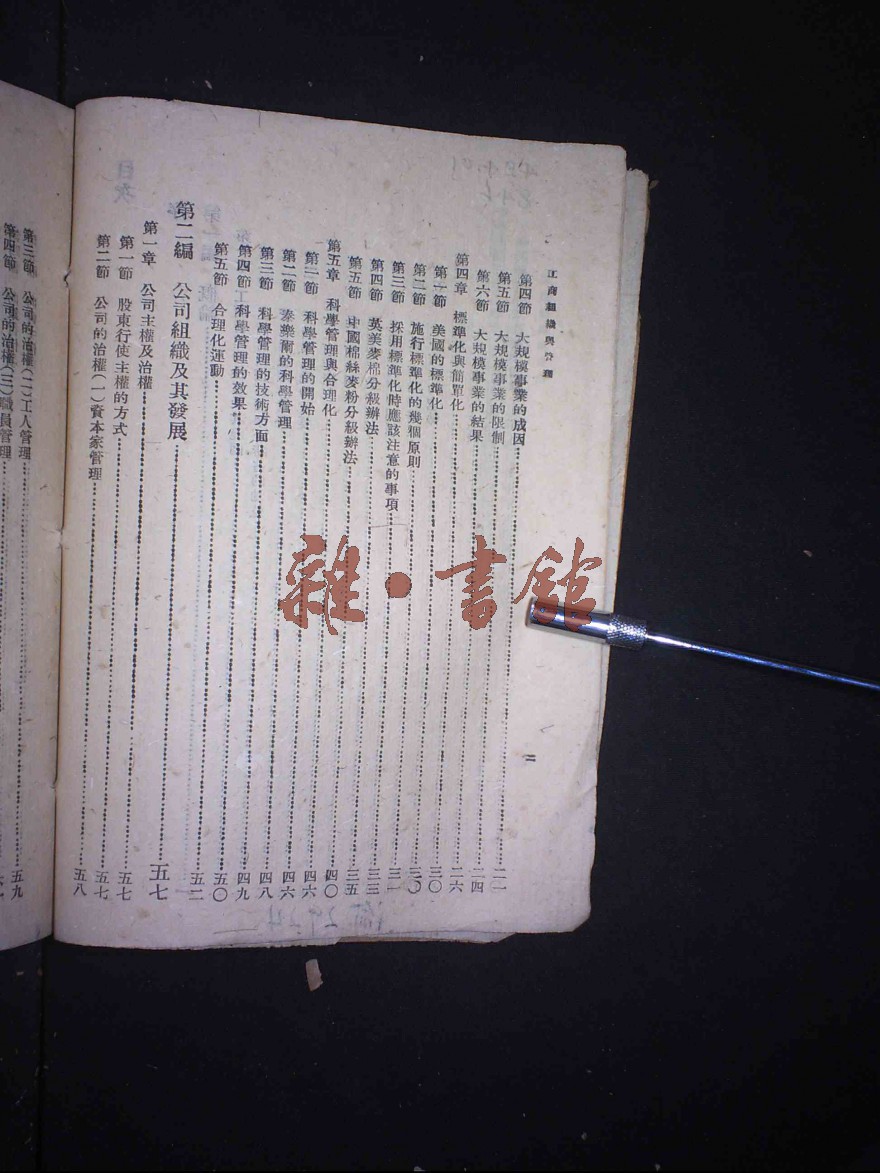 工商組織與管理
二
第四節 大規模事業的成因……二一
第五節 大規模事業的限制……二四
第六節 大規模事業的結果……二六
第四章 標準化與簡單化……三〇
第一節 美國的標準化……三〇
第二節 施行標準化的幾個原則……三一
第三節 採用標準化時應該注意的事項……三三
第四節 英美麥棉分級辦法……三五
第五節 中國棉絲麥粉分級辦法……四〇
第五章 科學管理與合理化……四六
第一節 科學管理的開始……四六
第二節 泰樂爾的科學管理……四八
第三節 科學管理的技術方面……四九
第四節 科學管理的效果……五〇
第五節 合理化運動……五二
第二編 公司組織及其發展……五七
第一章 公司主權及治權……五七
第一節 股東行使主權的方式……五七
第二節 公司的治權(一)資本家管理……五八
第三節 公司的治權(二)工人管理……五九
第四節 公司的治權(三)職員管理……
雜·書館